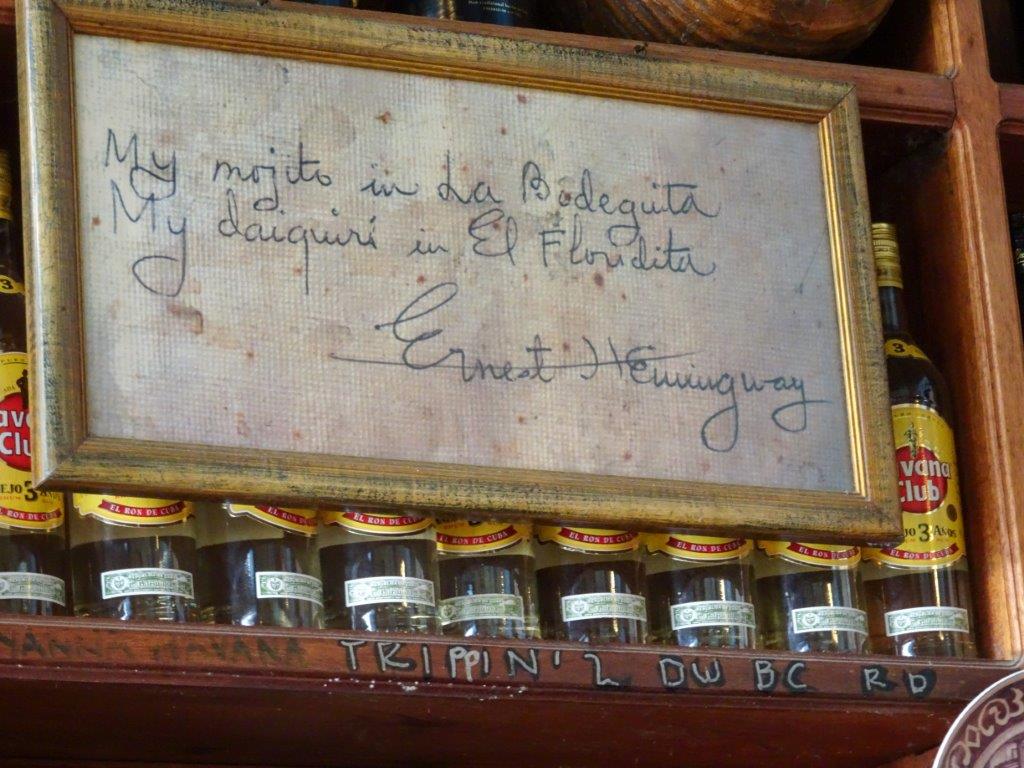 My mojito in La Bodeguita
My daiquirí in El Floridita
Ernest Hemingway
3
3
Havana
Club
3 AÑOS
EL RON DE CUBA
vana
Club
JO 3 AÑOS
EL RON DE CUBA
EL RON DE CUBA
EL RON DE CUBA
EL RON DE CUBA
EL RON DE CUBA
EL RON DE CUBA
EL RON DE CUBA
EL RON DE CUBA
HAVANA TRIPPIN' 2 DW BC RD